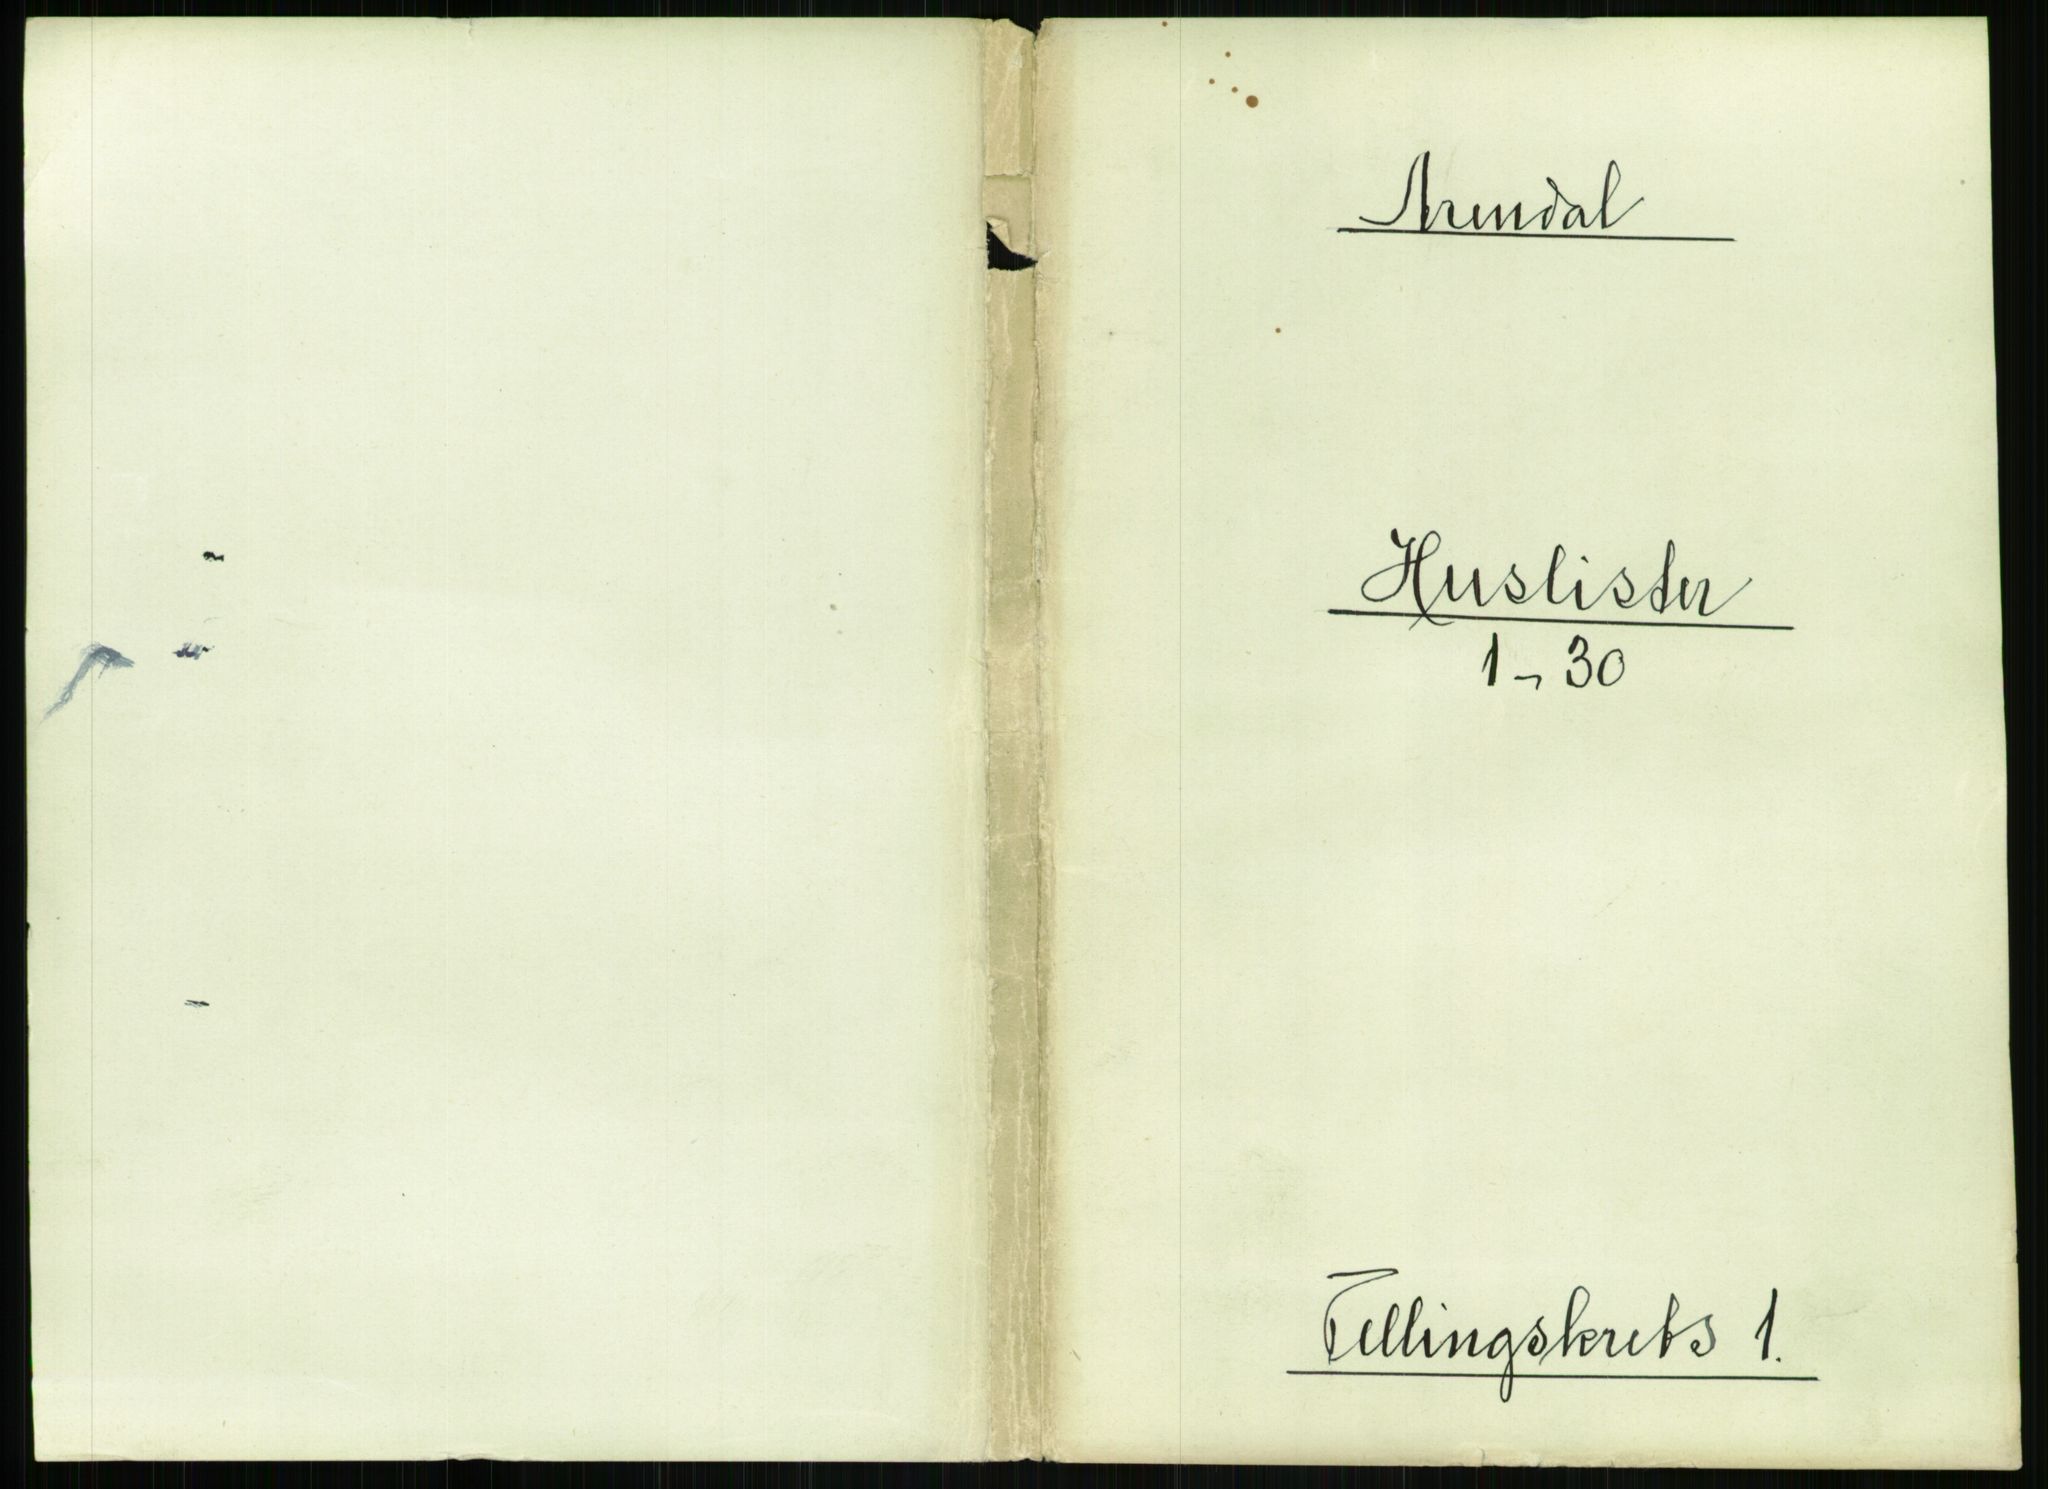 Arendal
Huslister
1 - 30
Tellingskrets 1.